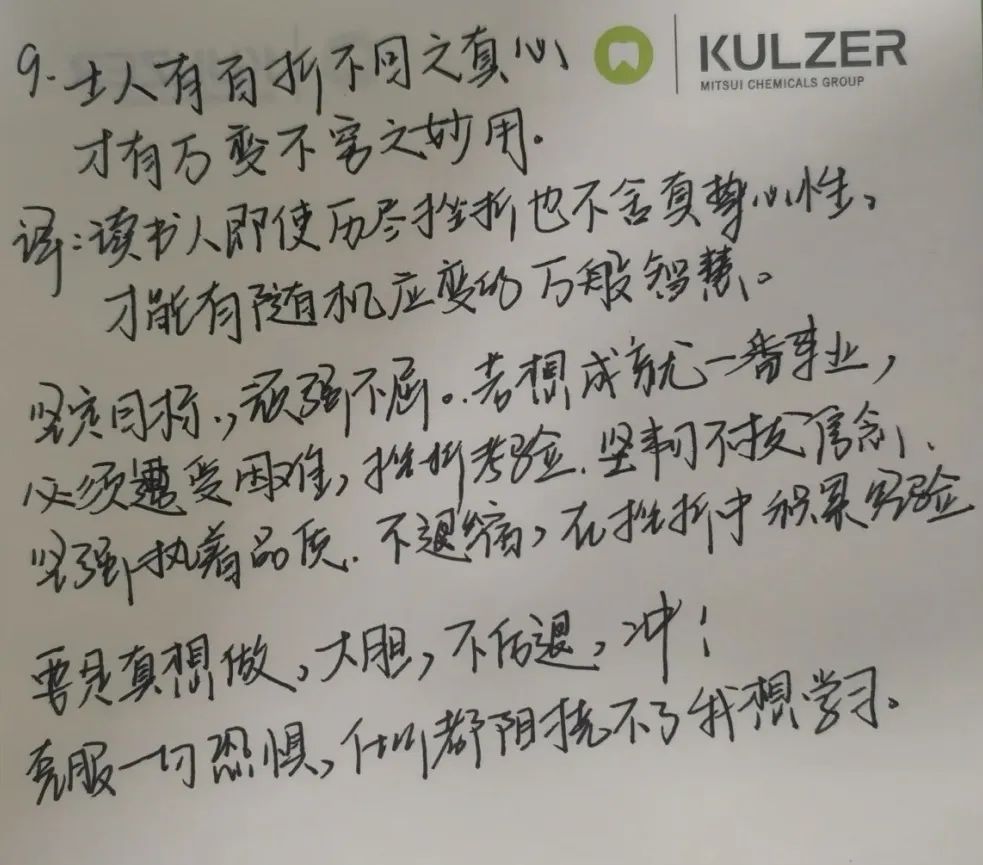 9. 士人有百折不回之真心
KULZER
MITSUI CHEMICALS GROUP
才有万变不穷之妙用。
译:读书人即使历尽挫折也不舍真挚心性,
才能有随机应变的万般智慧。
坚定目标,顽强不屈。若想成就一番事业,
必须遭受困难,挫折考验.坚韧不拔信念、
坚强执着品质.不退缩,在挫折中积累经验
要是真想做,大胆,不后退,冲!
克服一切恐惧,什么都阻挠不了我想学习。